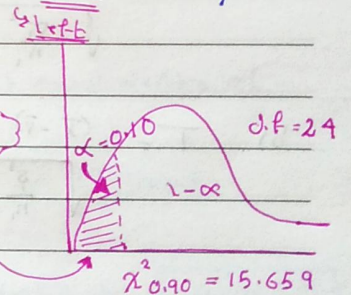 ↳ Left
α = 0.10
d.f = 24
1 - α
χ²0.90 = 15.659